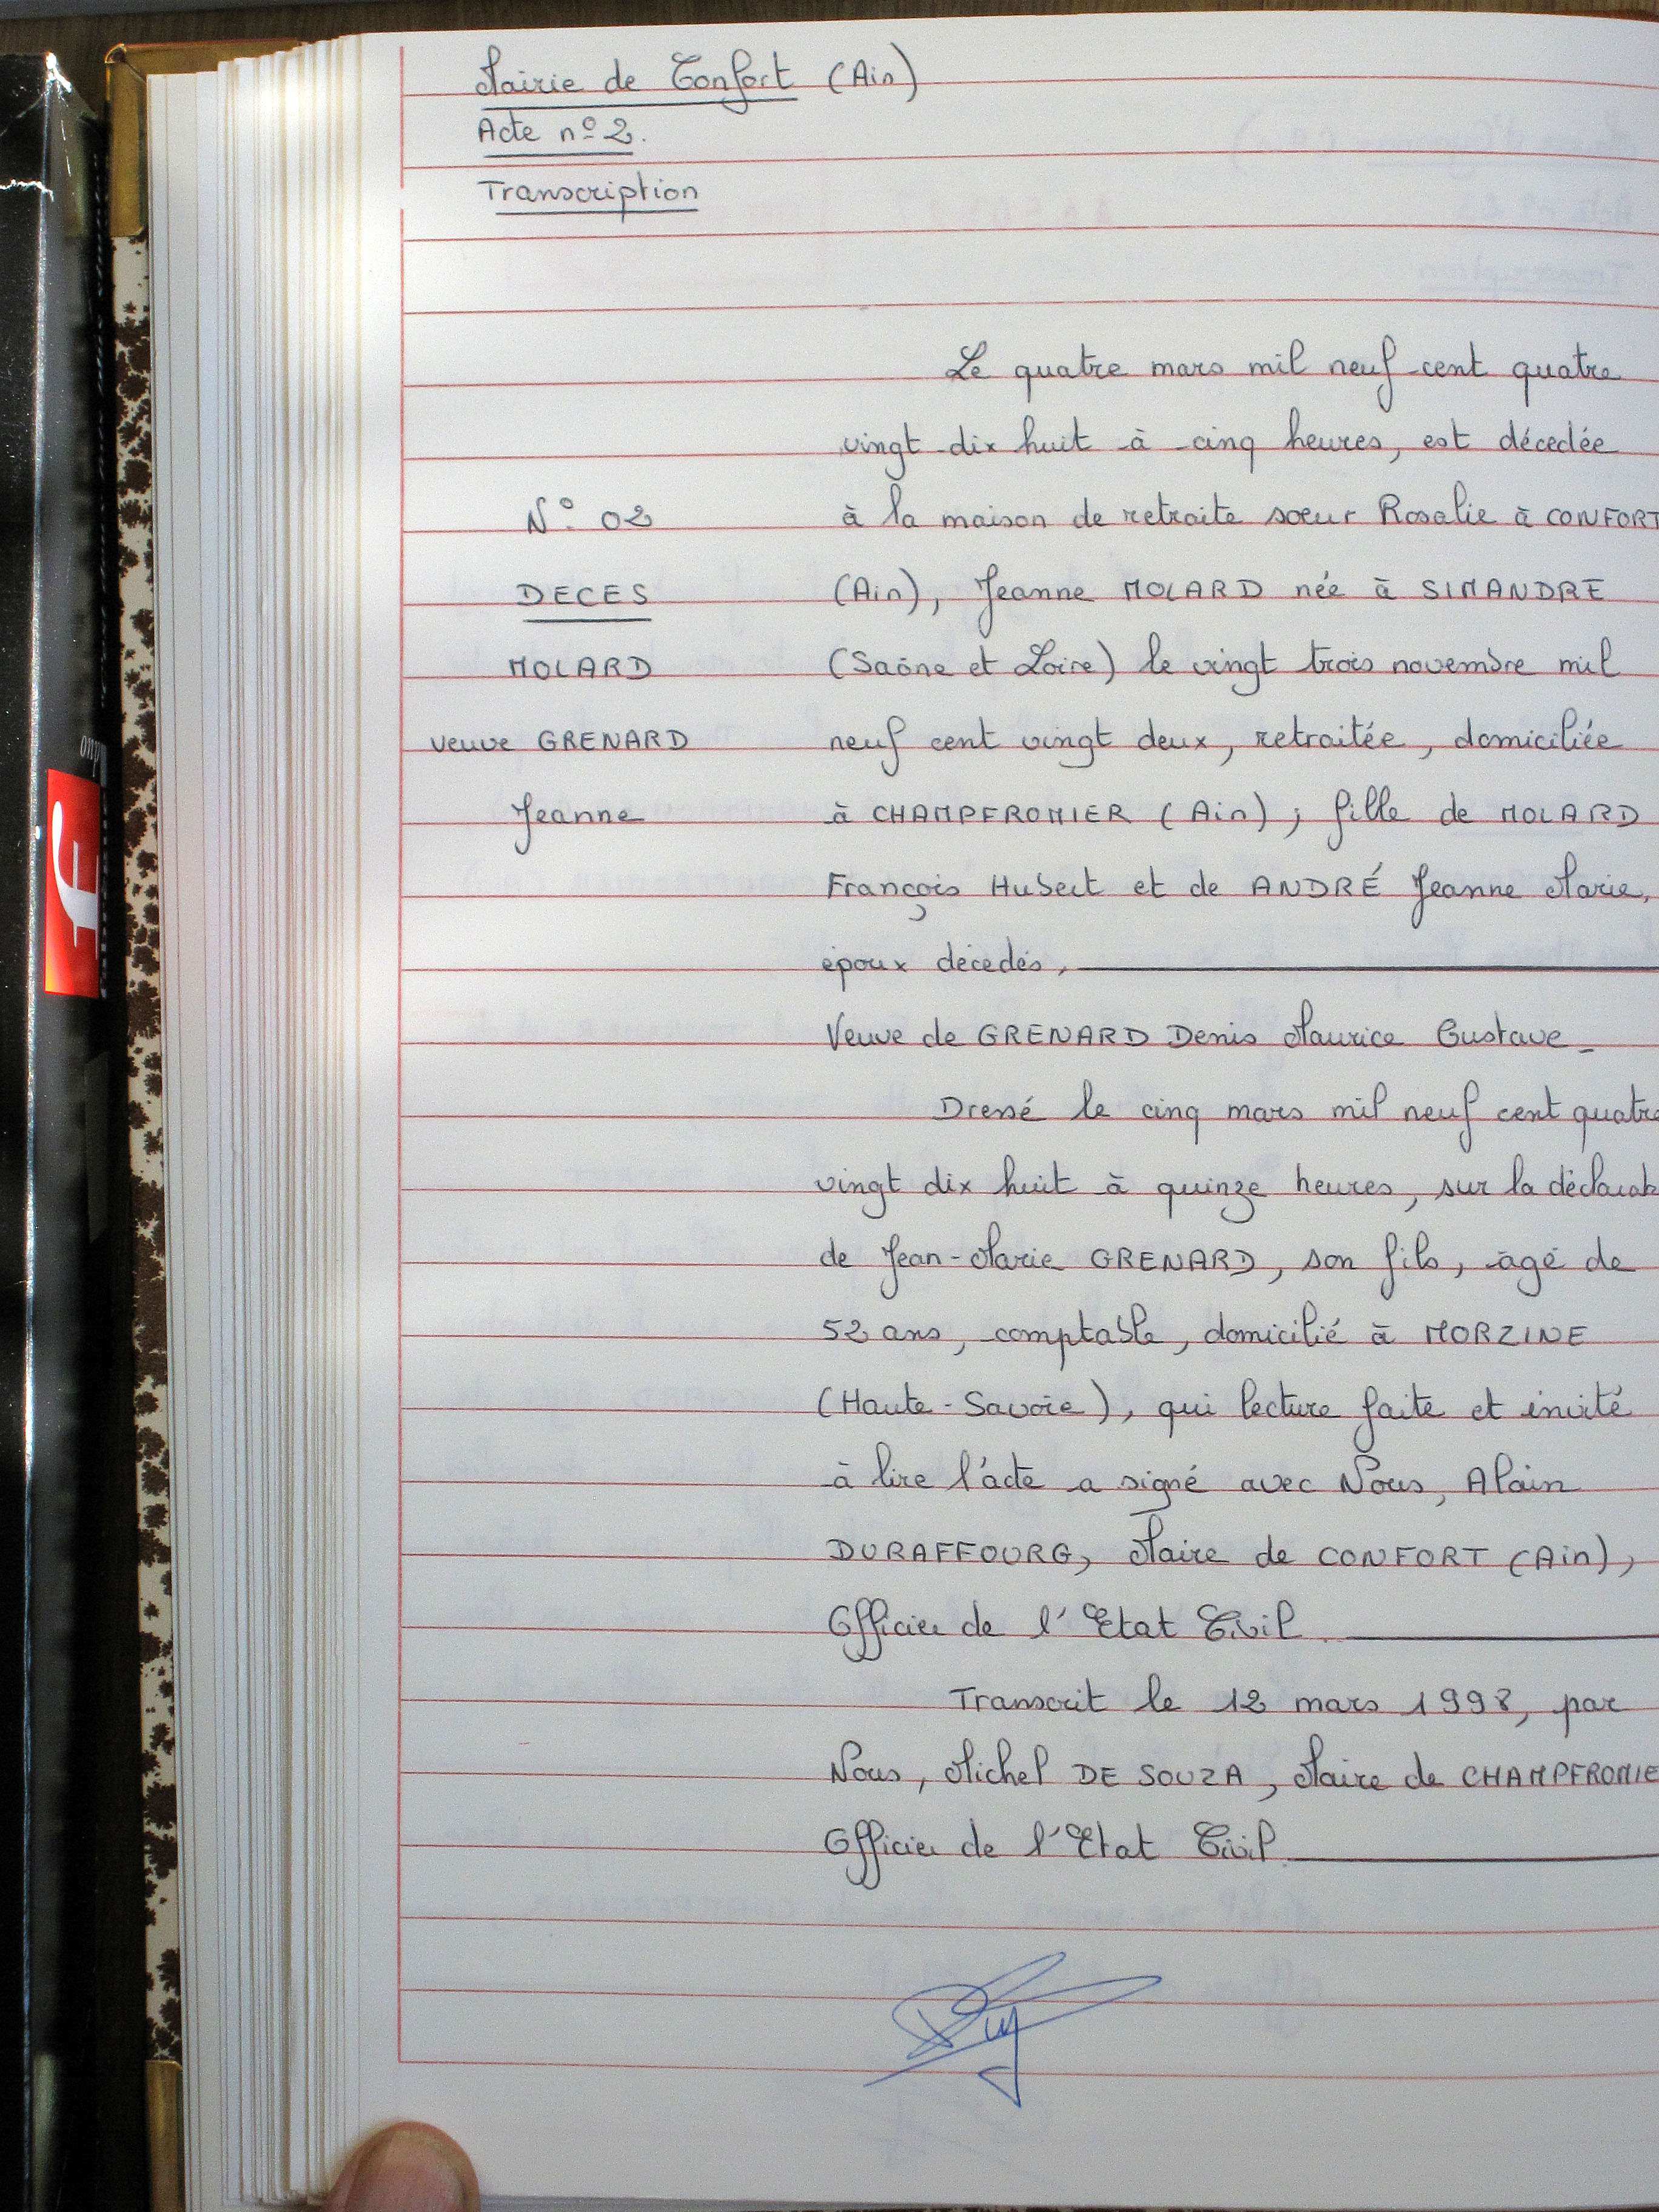 Mairie de Confort (Ain)
Acte n° 2.
Transcription
Le quatre mars mil neuf cent quatre
vingt dix huit à cinq heures, est décedée
N° 02
à la maison de retraite soeur Rosalie à CONFORT
DECES
(Ain), Jeanne MOLARD née à SIMANDRE
MOLARD
(Saône et Loire) le vingt trois novembre mil
veuve GRENARD
neuf cent vingt deux, retraitée, domiciliée
Jeanne
à CHAMPFROMIER (Ain) ; fille de MOLARD
François Hubert et de ANDRÉ Jeanne Marie,
époux décédés,
Veuve de GRENARD Denis Maurice Gustave
Dressé le cinq mars mil neuf cent quatre
vingt dix huit à quinze heures, sur la déclarat
de Jean-Marie GRENARD, son fils, âgé de
52 ans, comptable, domicilié à MORZINE
(Haute-Savoie), qui lecture faite et invité
à lire l'acte a signé avec Nous, Alain
DURAFFOURG, Maire de CONFORT (Ain),
Officier de l'Etat Civil
Transcrit le 12 mars 1998, par
Nous, Michel DE SOUZA, Maire de CHAMPFROMIE
Officier de l'Etat Civil